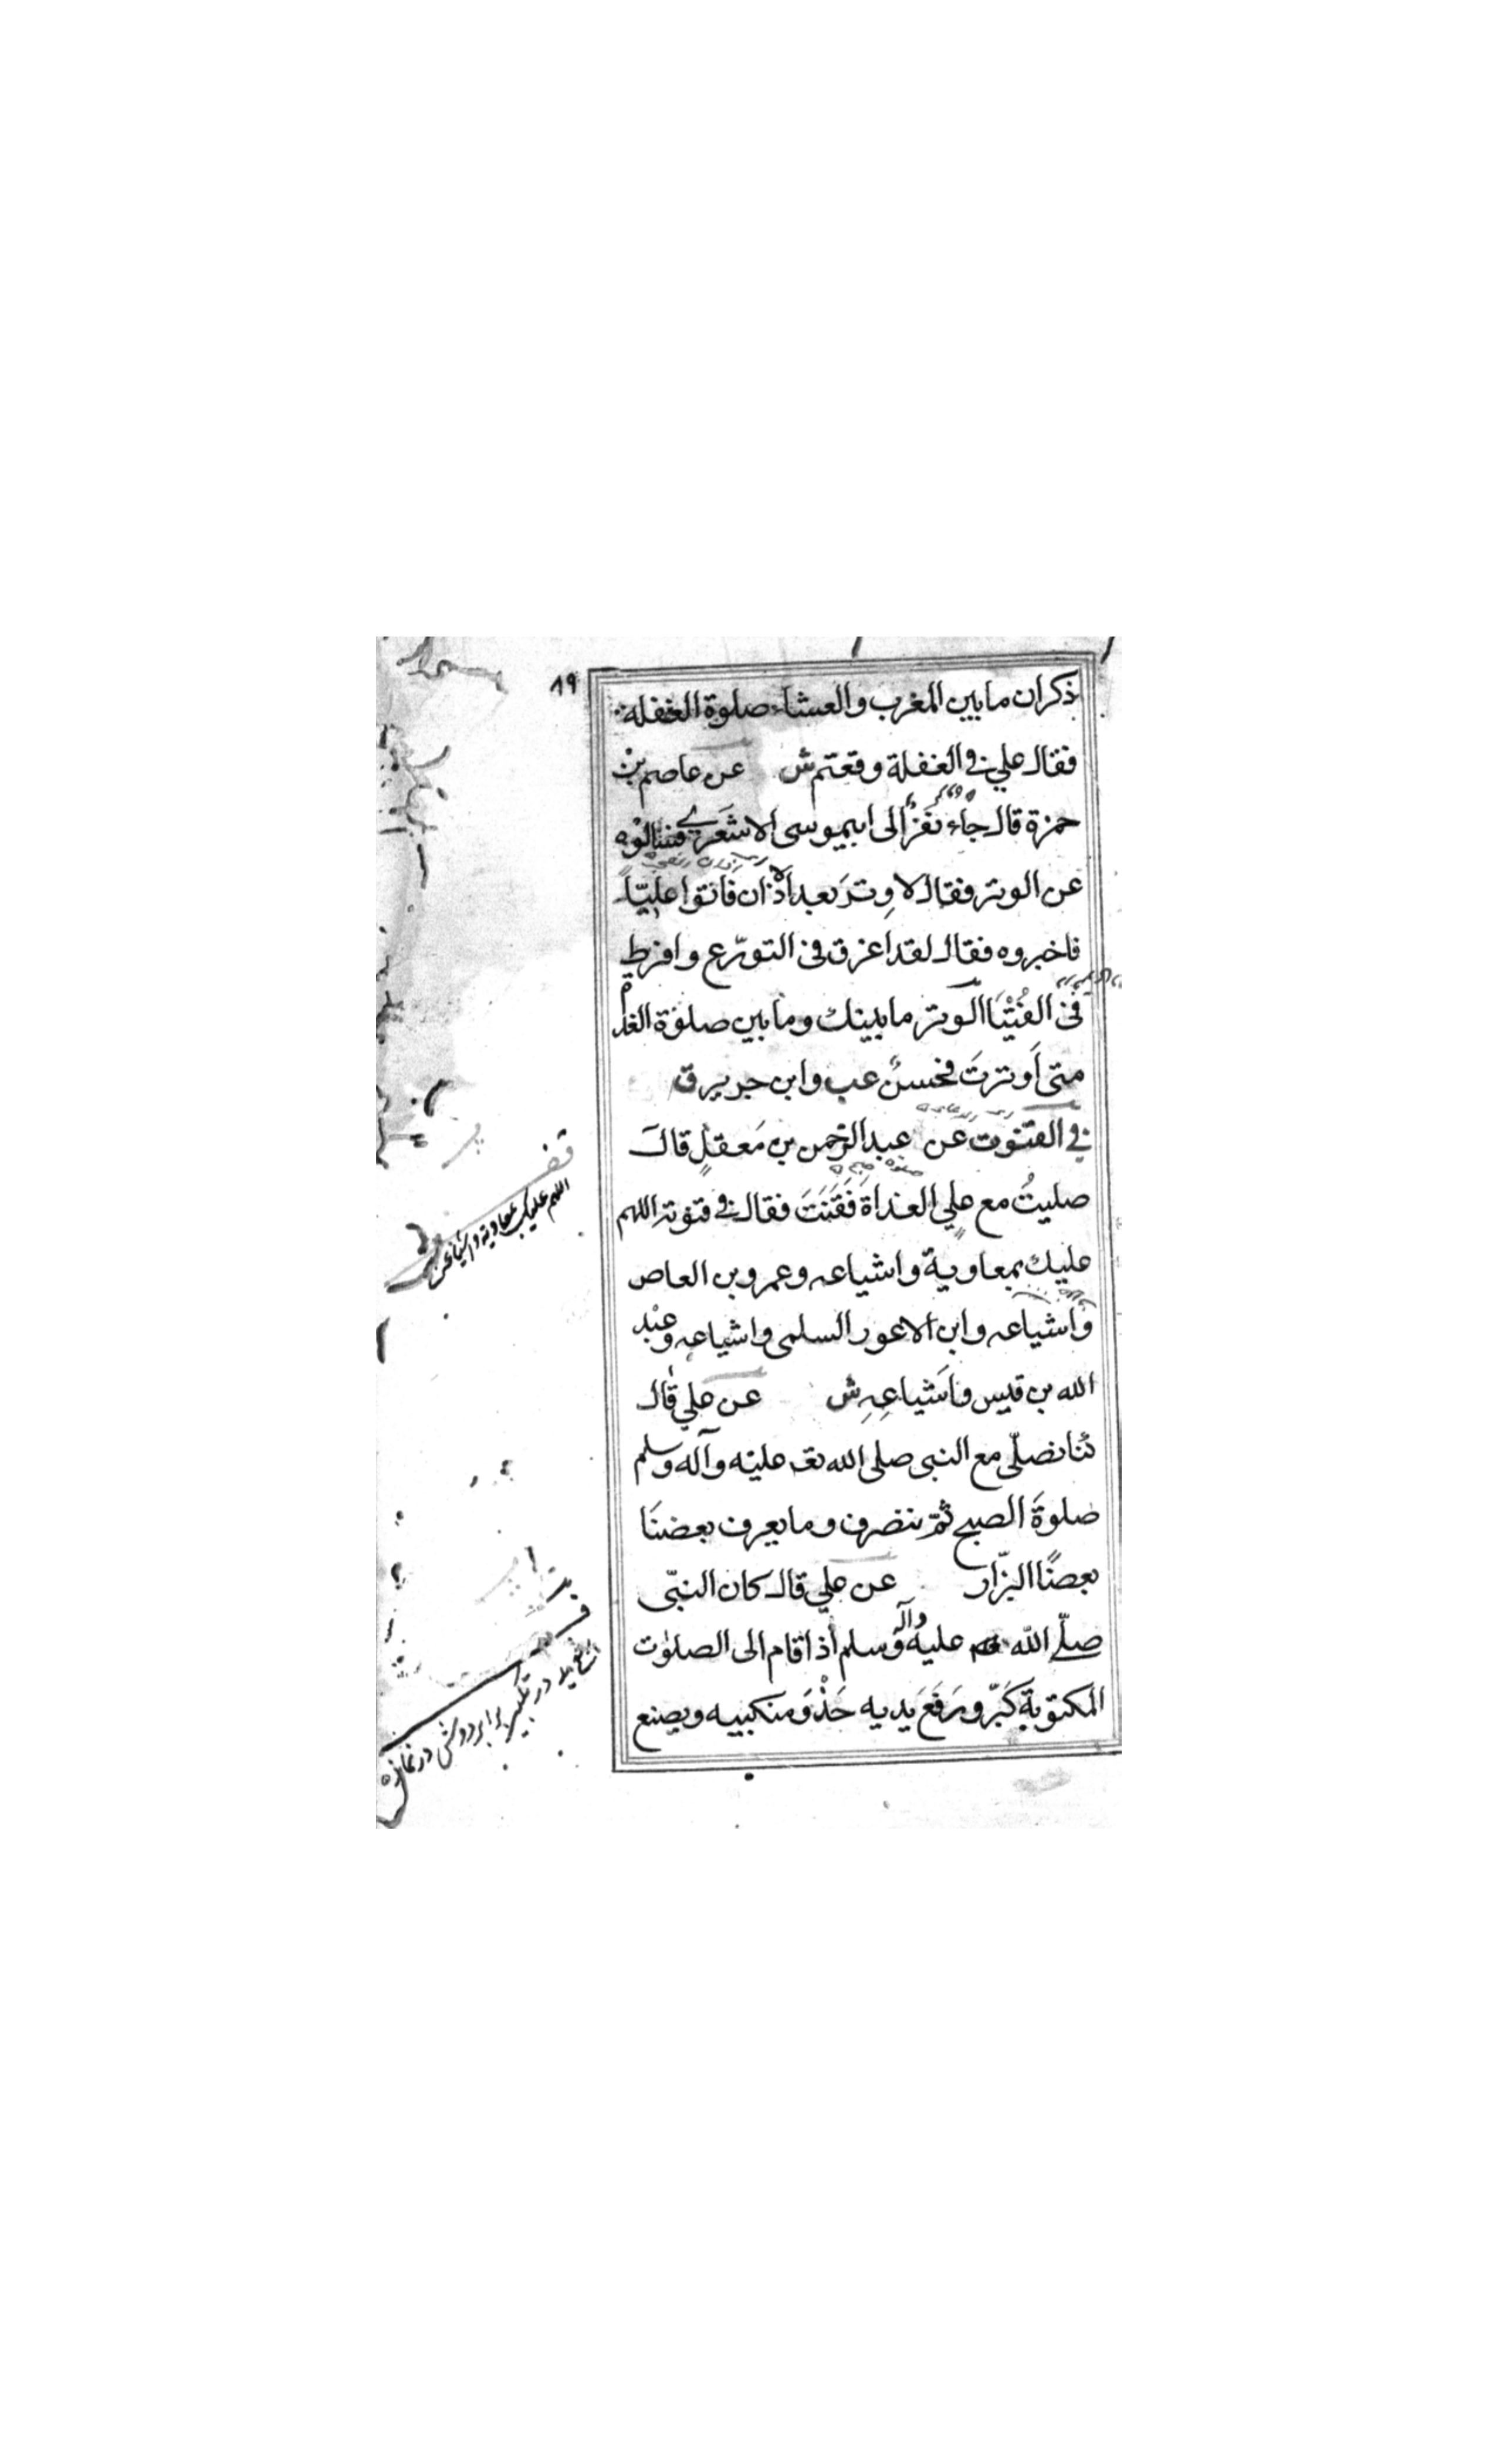 ١٩
ذكر ان ما بين المغرب والعشاء صلوة الغفلة
فقال علي في الغفلة وقعتم ش عن عاصم بن
حمزة قال جاء نفرٌ الى ابيموسى الاشعري فسالوه
عن الوتر فقال لا وِترَ بعد الاذان فاتوا عليّا
فاخبروه فقال لقد اغرق في التورّع وافرط
في الفُتْيَا الوتر ما بينك وما بين صلوة الغد
متى اَوترتَ فحسنٌ عب وابن جرير ق
في القنوت عن عبد الرحمن بن مَعقل قال
صليتُ مع علي الغداة فَقَنَتَ فقال في قنوته اللهم
عليك بمعاوية واشياعه وعمرو بن العاص
واشياعه وابن الاعور السلمى واشياعه وعبد
الله بن قيس واَشياعِهِ ش عن علي قال
كنا نصلّي مع النبى صلى الله تعـ عليه وآله وسلم
صلوةَ الصبح ثمّ ننصرف وما يعرف بعضنَا
بعضًا البزّار عن علي قال كان النبّى
صلّے الله عليه وآله وسلم اذا قام الى الصلوٰت
المكتوبة كَبّر ورَفَعَ يديه حَذْوَ منكبيه ويصنع
اللهم عليك بمعاوية واشياعه
در تكبير برابر دوش در نماز